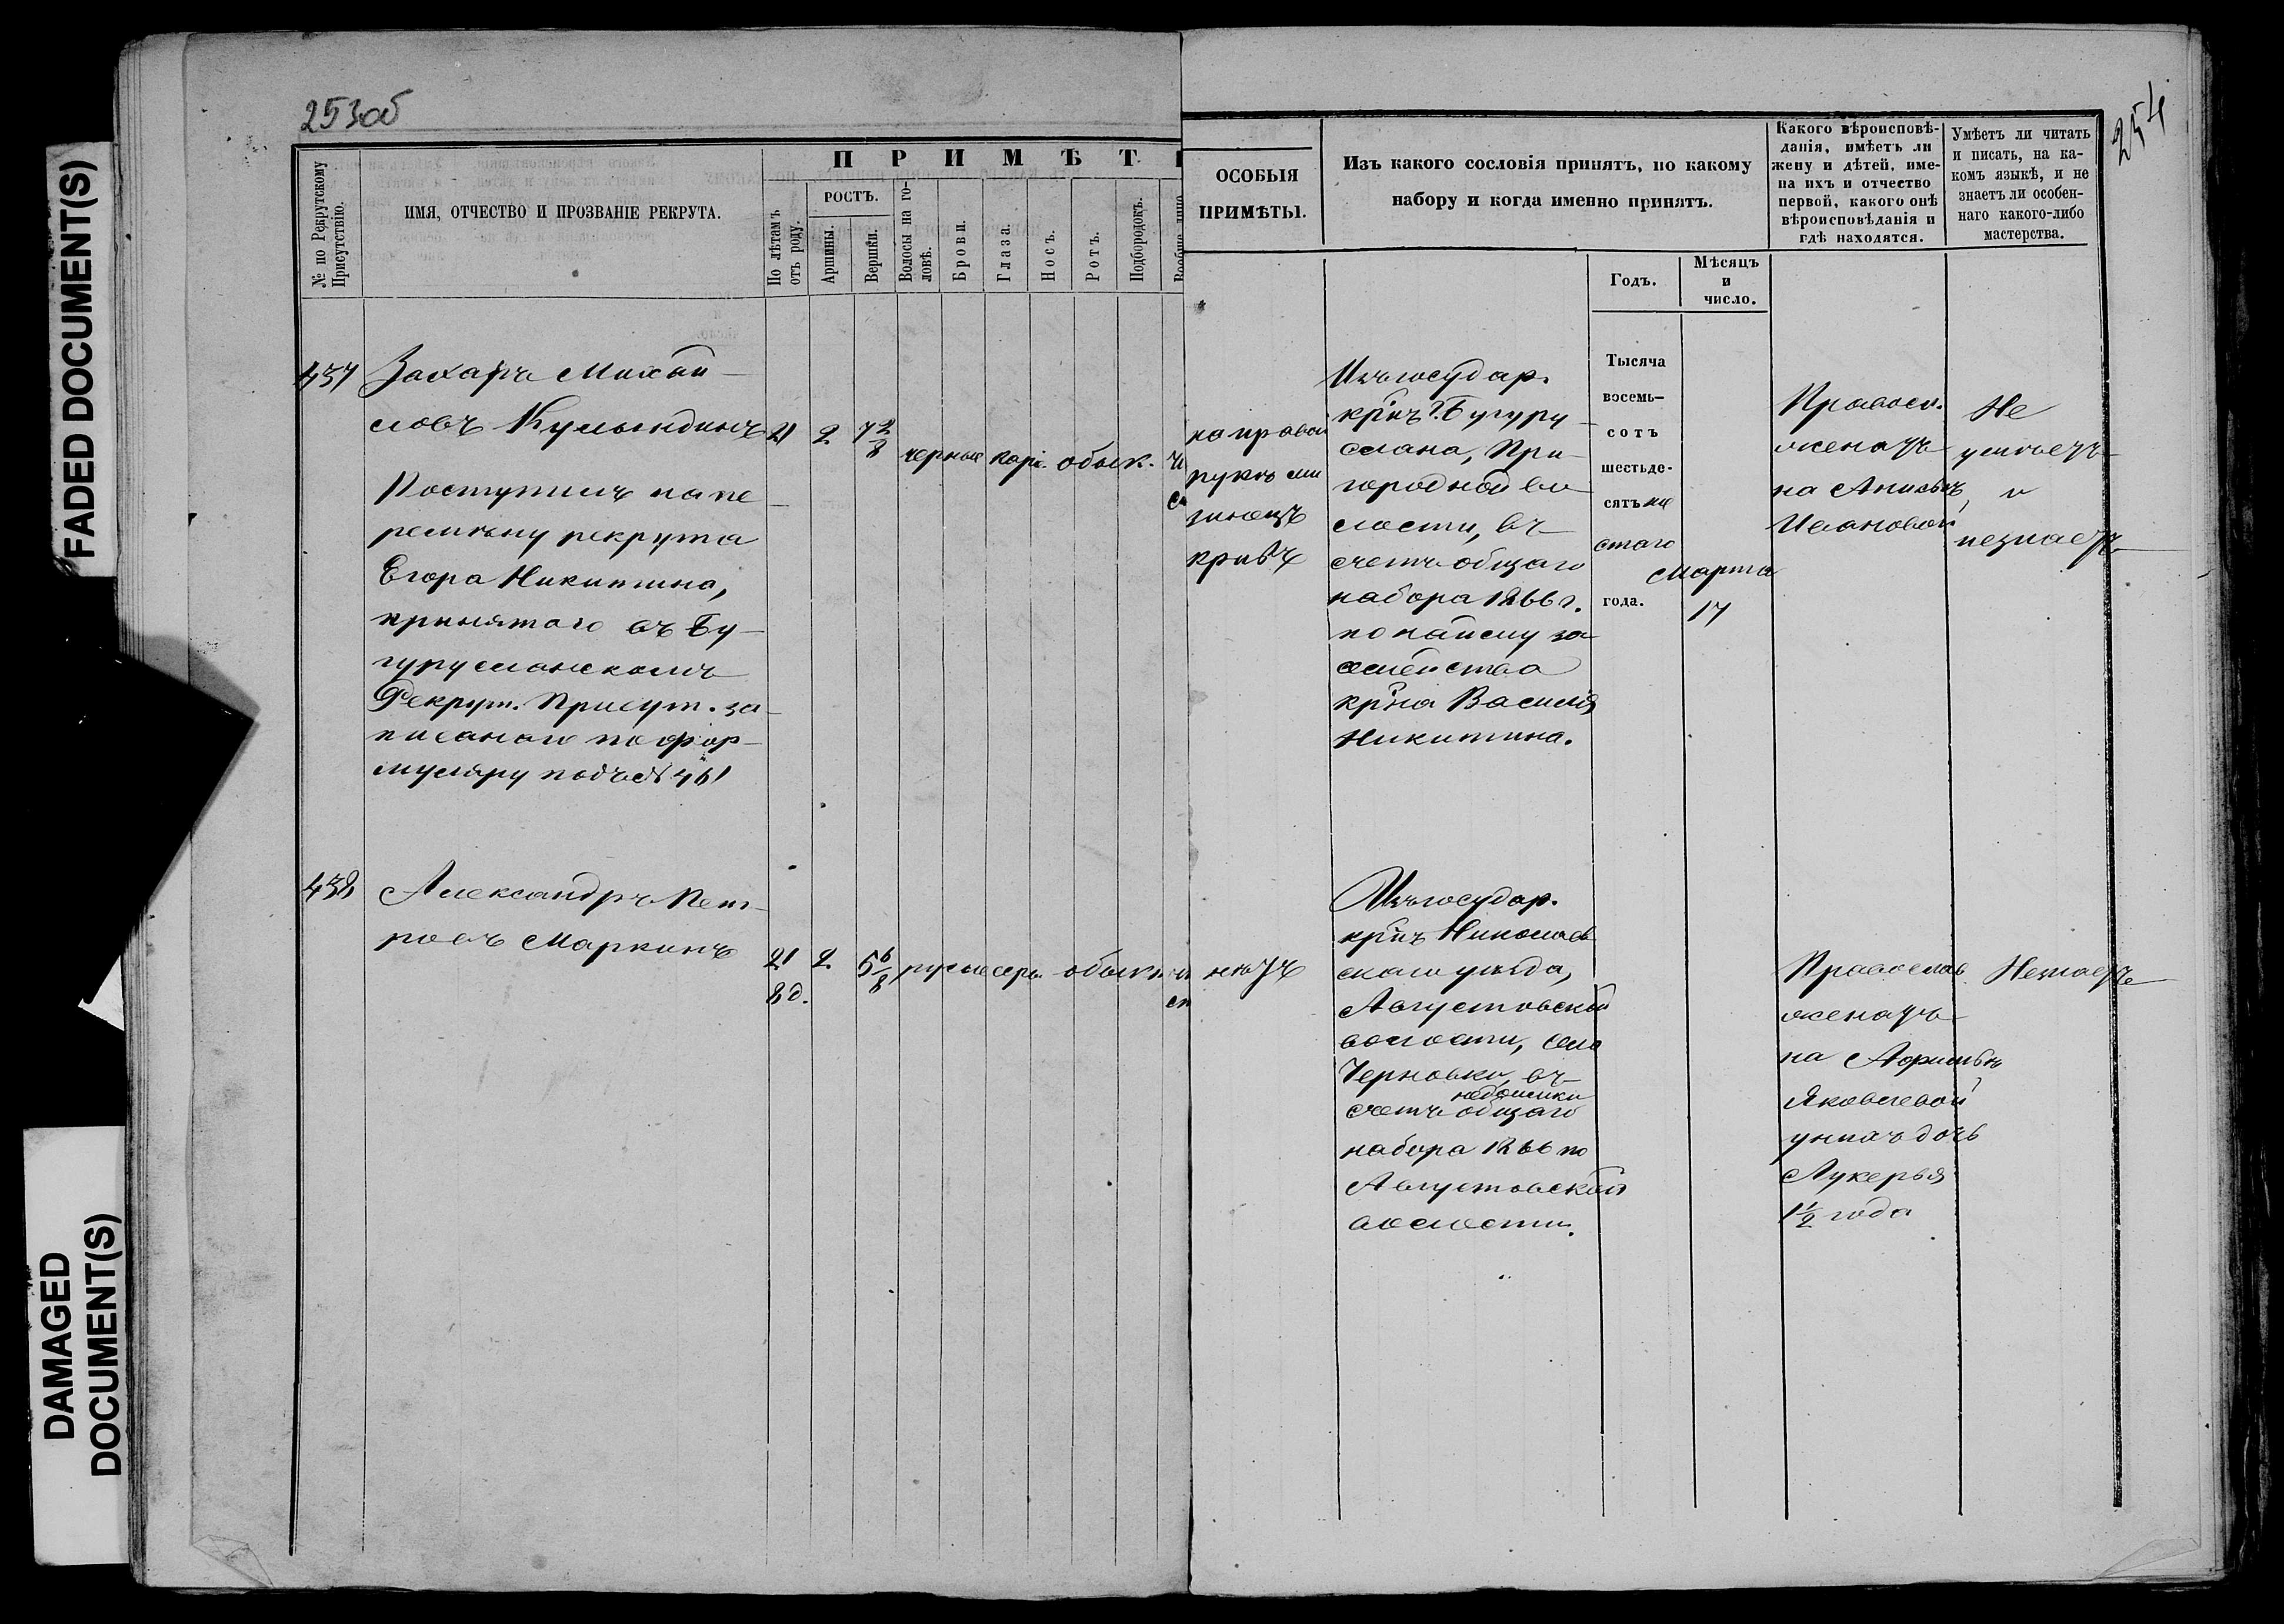 FADED DOCUMENT(S)
DAMAGED
DOCUMENT(S)
253об
254
№ по Рекрутскому
Присутствію.
ИМЯ, ОТЧЕСТВО И ПРОЗВАНІЕ РЕКРУТА.
По лѣтамъ
отъ роду.
П Р И М Ѣ Т
РОСТЪ.
Аршины.
Вершки.
Волосы на го-
ловѣ.
Брови.
Глаза.
Носъ.
Ротъ.
Подбородокъ.
ОСОБЫЯ
ПРИМѢТЫ.
Изъ какого сословія принятъ, по какому
набору и когда именно принятъ.
Годъ.
Мѣсяцъ
и
число.
Какого вѣроисповѣ-
данія, имѣетъ ли
жену и дѣтей, име-
на ихъ и отчество
первой, какого онѣ
вѣроисповѣданія и
гдѣ находятся.
Умѣетъ ли читать
и писать, на ка-
комъ языкѣ, и не
знаетъ ли особен-
наго какого-либо
мастерства.
437
Захаръ Михай-
ловъ
Поступилъ на пе-
ремѣну рекрута
Егора Никитина,
принятаго въ Бу-
гурусланскомъ
Рекрут. Присут. за-
писанаго по фор-
муляру подъ №
21
2
7 2/8
черные
карі.
обык.
на правой
рукѣ ми
зинецъ
кривъ
Изъ государ.
кр̃нъ г. Бугуру-
слана, При-
городной во-
лости, въ
счетъ общаго
набора 1866 г.
по найму за
семейства
кр̃на Василія
Никитина.
Тысяча
восемь-
сотъ
шестьде-
сятъ ше
стаго
года.
Марта
17
Правосл.
женатъ
на
Ивановой
Не
умѣетъ
и
незнаетъ
438
Александръ Пет-
ровъ Маркинъ
21
8 д.
2
5 6/8
русые
сер.
обыкн
нѣтъ
Изъ государ.
кр̃нъ Николаев
скаго уѣзда,
Августовской
волости, села
Черновки, въ
недоимки
счетъ общаго
набора 1866 по
Августовской
волости.
Православ
женатъ
на Афимьѣ
Яковлевой
у нихъ дочь
Лукерья
1 1/2 года
Незнаетъ